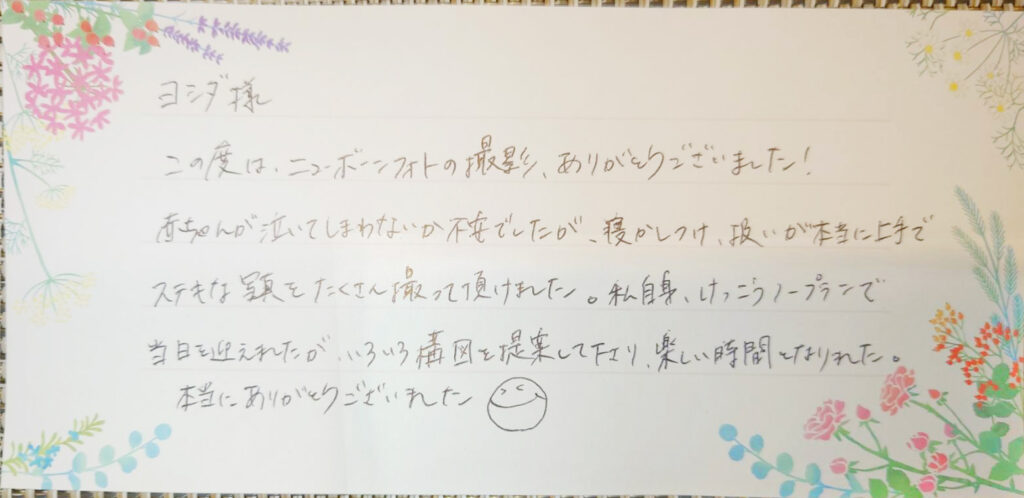 ヨシダ様
この度は、ニューボーンフォトの撮影、ありがとうございました!
赤ちゃんが泣いてしまわないか不安でしたが、寝かしつけ、扱いが本当に上手で
ステキな写真をたくさん撮って頂けました。私自身、けっこうノープランで
当日を迎えましたが、いろいろ構図を提案して下さり、楽しい時間となりました。
本当にありがとうございました